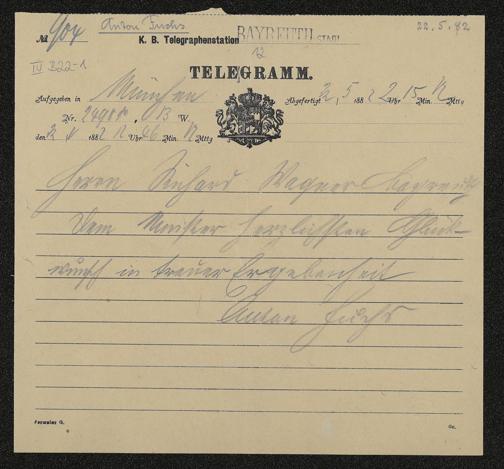 Anton Fuchs
22.5.82
№ 404 K. B. Telegraphenstation BAYREUTH STADT
12
IV B22-1
TELEGRAMM.
Aufgegeben in München Abgefertigt 22, 5 1882 2 Uhr 15 Min. N Mttg
Nr. 13 W.
den 188 Uhr Min. N Mttg
Herrn Richard Wagner Bayreuth
Dem Meister herzlichsten Glück-
wunsch in treuer Ergebenheit
Anton Fuchs
Formular G.